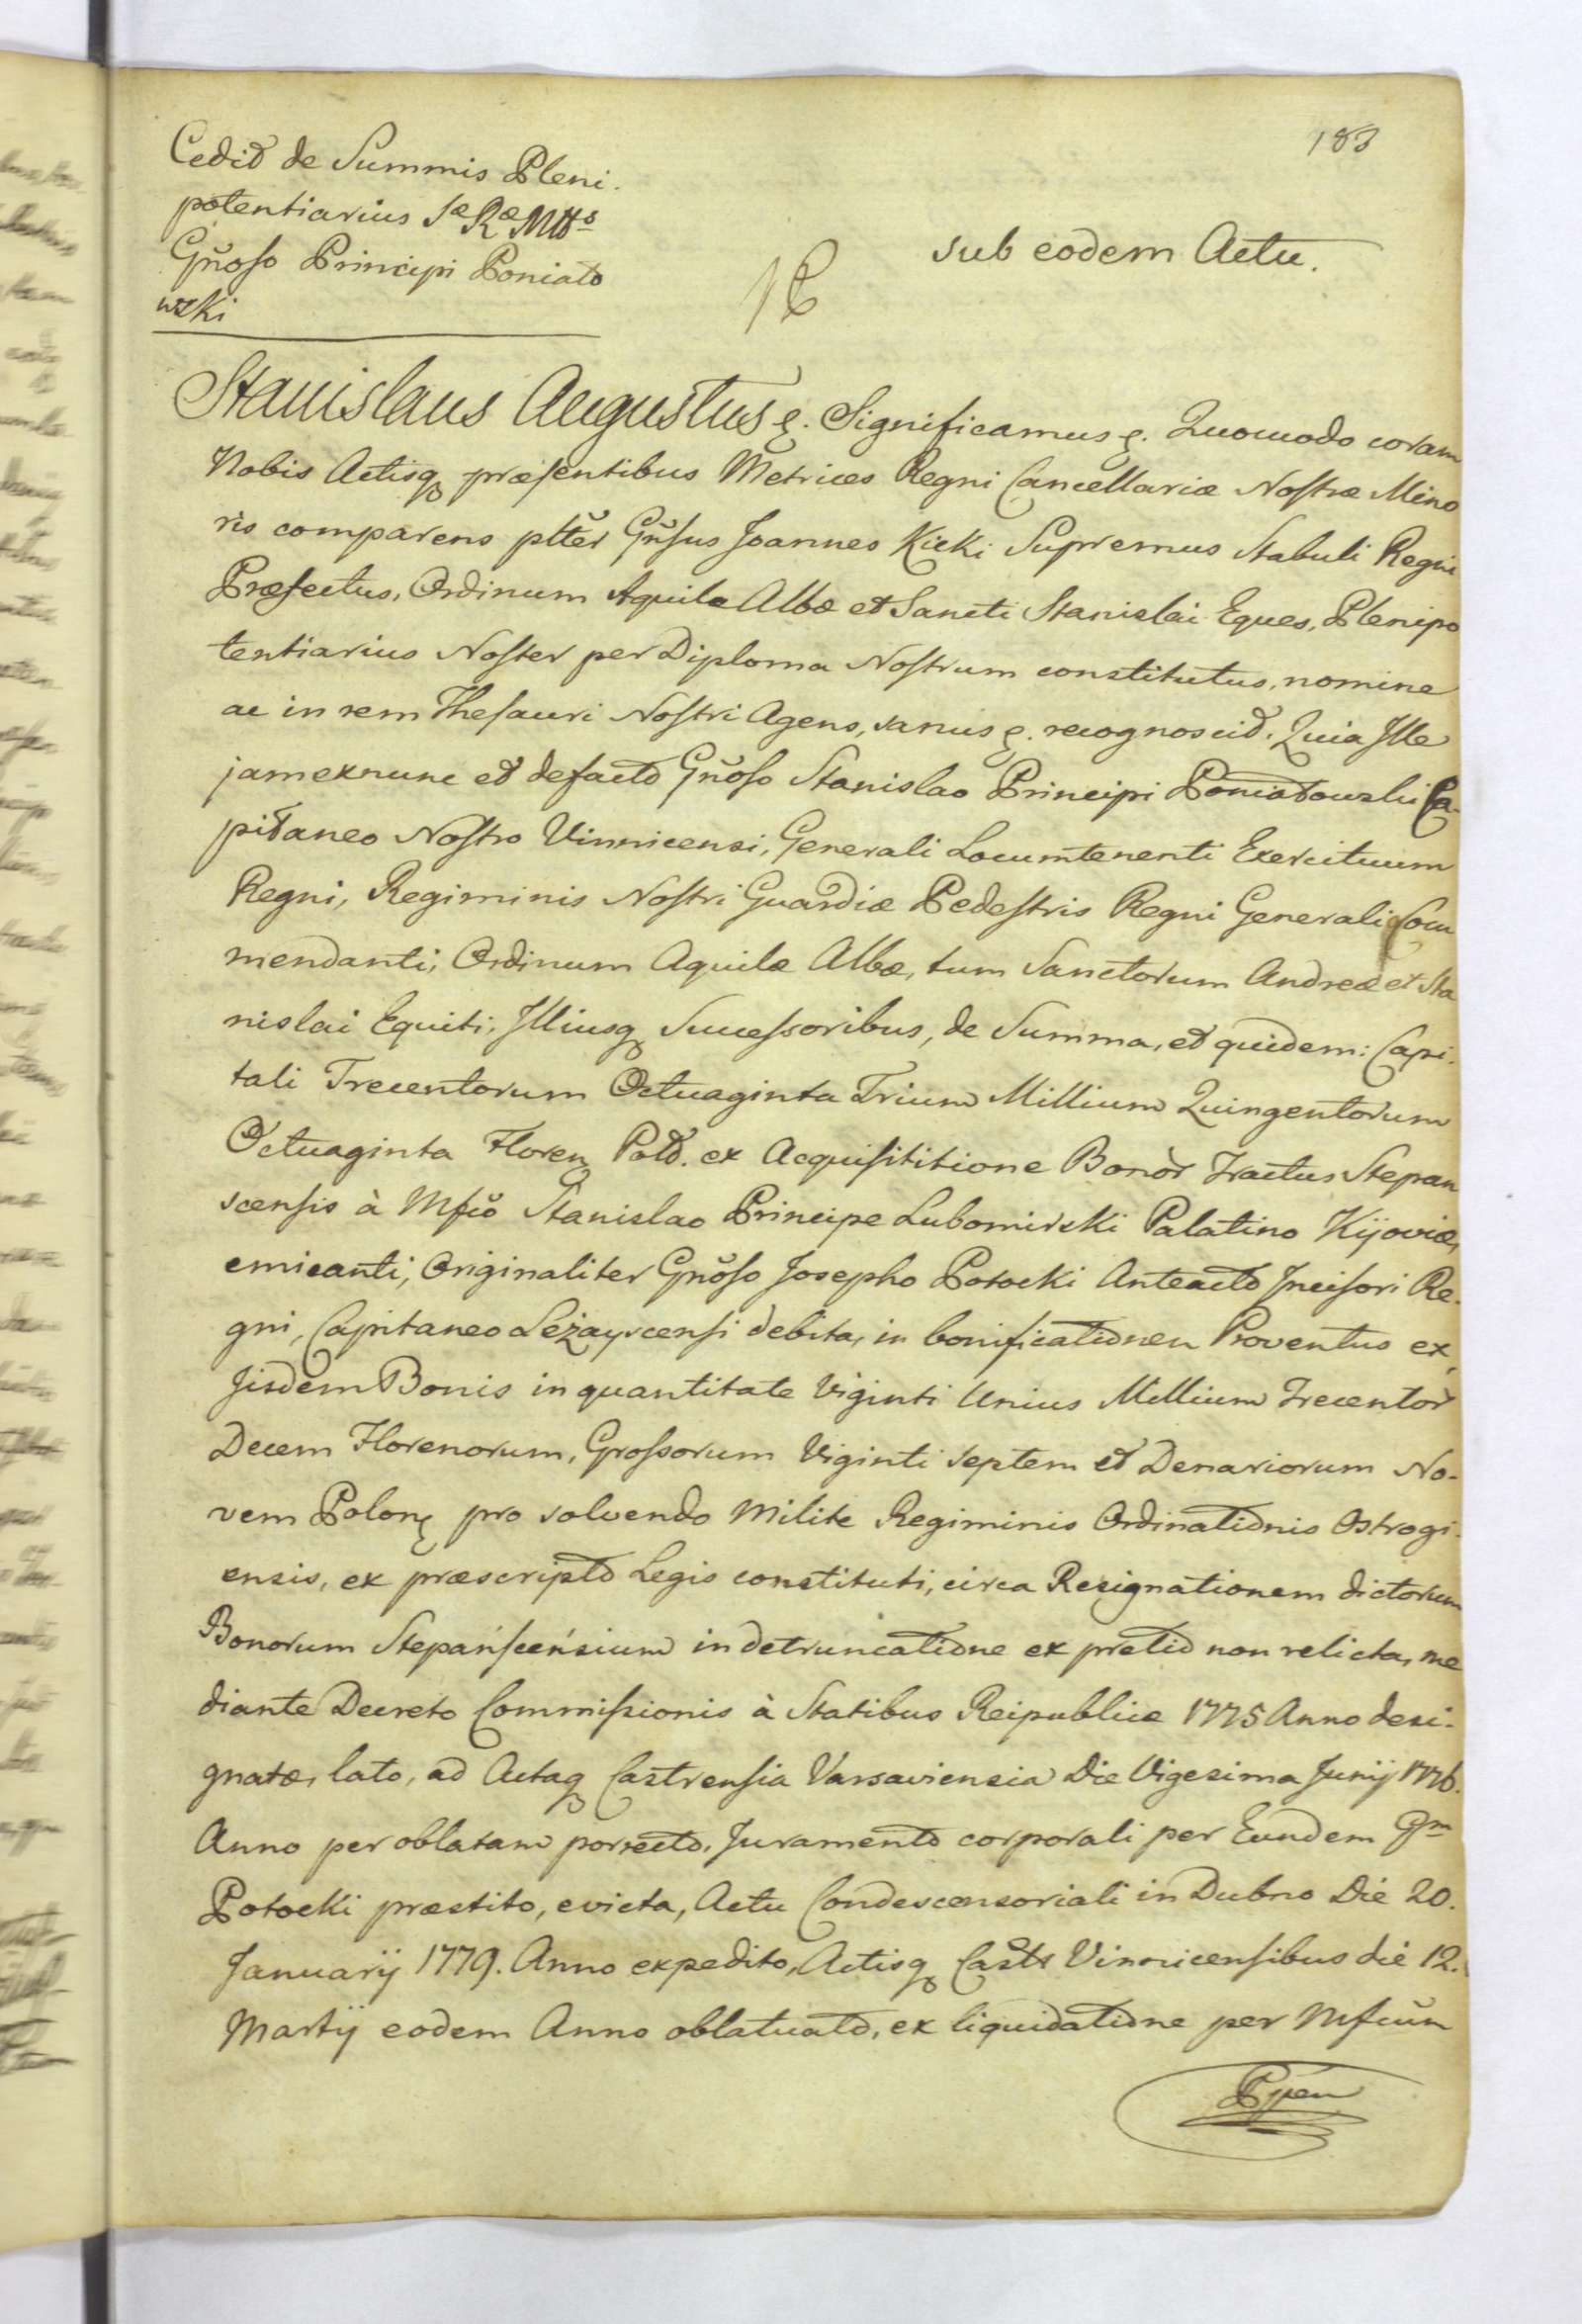 183
Cedit de Summis Pleni-
potentiarius Sæ Ræ Mttis
Gñoso Principi Poniato
wski
sub eodem Actu.
Stanislaus Augustus &. Significamus &. Quomodo coram
Nobis Actisq præsentibus Metrices Regni Cancellariæ Nostræ Mino
ris comparens pltter Gñsus Joannes Kicki Supremus Stabuli Regni
Præfectus, Ordinum Aquilæ Albæ et Sancti Stanislai Eques, Plenipo
tentiarius Noster per Diploma Nostrum constitutus, nomine
ac in rem Thesauri Nostri Agens, sanus &. recognoscit. Quia Ille
jam exnunc et defacto Gñoso Stanislao Principi Poniatowski Ca-
pitaneo Nostro Vinnicensi, Generali Locumtenenti Exercituum
Regni, Regiminis Nostri Guardiæ Pedestris Regni Generali Com
mendanti, Ordinum Aquilæ Albæ, tum Sanctorum Andreæ et Sta
nislai Equiti, Illiusq Successoribus, de Summa, et quidem: Capi-
tali Trecentorum Octuaginta Trium Millium Quingentorum
Octuaginta Floren Pold. ex Acquisititione Bonor Tractus Stepan
scensis à Mfco Stanislao Principe Lubomirski Palatino Kijoviæ,
emicanti, Originaliter Gñoso Josepho Potocki Anteacto Incisori Re-
gni, Capitaneo Leżayscensi debita, in bonificationem Proventus ex
Jisdem Bonis in quantitate Viginti Unius Millium Trecentor
Decem Florenorum, Grossorum Viginti septem et Denariorum No-
vem Polon pro solvendo Milite Regiminis Ordinationis Ostrogi-
ensis, ex præscripto Legis constituti, circa Resignationem dictorum
Bonorum Stepańsceńsium in detruncatione ex pretio non relicta, me
diante Decreto Commissionis à Statibus Reipublicæ 1775 Anno desi-
gnatæ, lato, ad Actaq Castrensia Varsaviensia Die Vigesima Junij 1776.
Anno per oblatam porrecto, Juramento corporali per Eundem Gm
Potocki præstito, evicta, Actu Condescensoriali in Dubno Die 20.
Januarij 1779. Anno expedito, Actisq Castr Vinnicensibus die 12.
Martij eodem Anno oblatuato, ex liquidatione per Mfcum